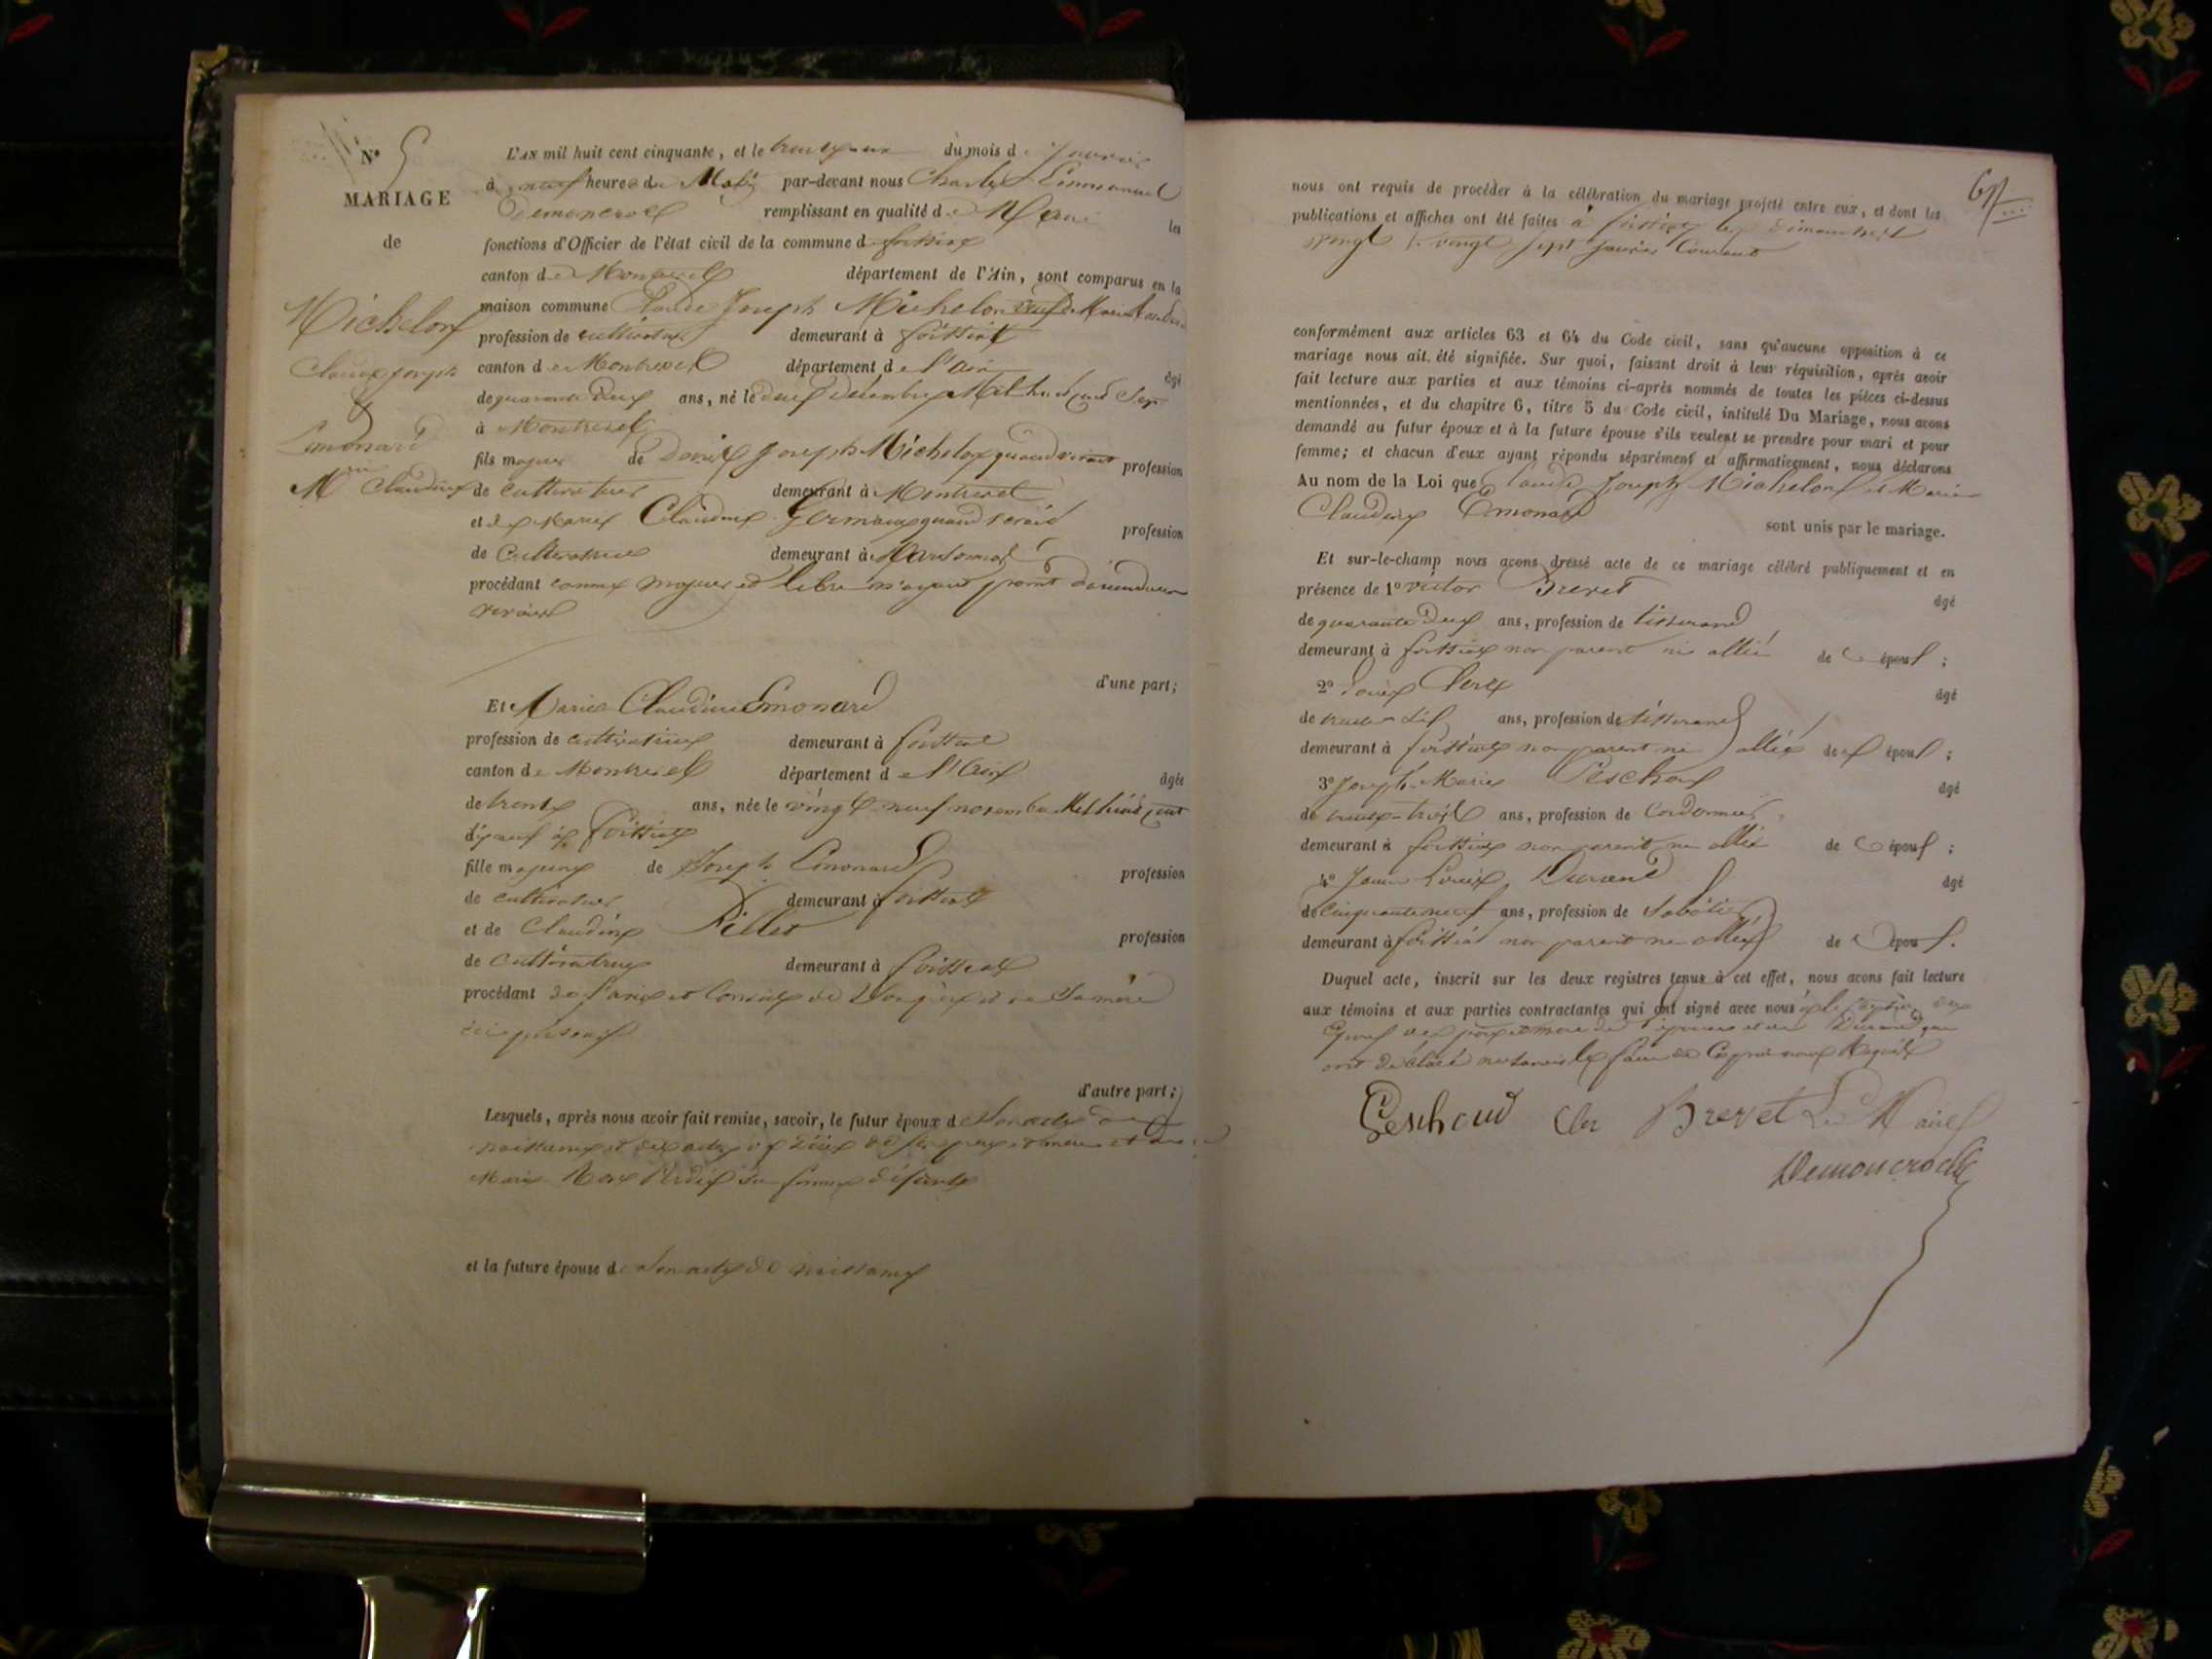 N° 5
MARIAGE
de
Michelon
Claude Joseph
&
Emonard
Mie Claudine
L'AN mil huit cent cinquante, et le trente un du mois de Janvier
à neuf heures du Matin par-devant nous Charles Emmanuel
remplissant en qualité de Maire les
fonctions d'Officier de l'état civil de la commune de foissiat
canton de Montrevel département de l'Ain, sont comparus en la
maison commune Claude Joseph Michelon veuf de Marie
profession de cultivateur demeurant à foissiat
canton de Montrevel département de l'ain âgé
de quarante Deux ans, né le Mil huit cent Sept
à Montrevel
fils majeur de Joseph Michelon quand vivait profession
de cultivateur demeurant à Montrevel
et de Marie Claudine quand vivait profession
de Cultivatrice demeurant à
procédant comme majeur et libre n'ayant point d'ascendants
d'une part;
Et Marie Claudine Emonard
profession de cultivatrice demeurant à foissiat
canton de Montrevel département de l'Ain âgée
de trente ans, née le vingt neuf novembre Mil huit cent
dixneuf à foissiat
fille majeure de Joseph Emonard profession
de cultivateur demeurant à foissiat
et de Claudine Pillet profession
de cultivatrice demeurant à foissiat
procédant de l'avis et Conseil de Son père et de Sa mère
ici présents
d'autre part;
Lesquels, après nous avoir fait remise, savoir, le futur époux de Son acte de
naissance et des actes de décès de ses père et mère et de
Marie Rose sa femme défunte
et la future épouse de Son acte de naissance
61
nous ont requis de procéder à la célébration du mariage projeté entre eux, et dont les
publications et affiches ont été faites à foissiat les dimanches
vingt & vingt sept janvier Courant
conformément aux articles 63 et 64 du Code civil, sans qu'aucune opposition à ce
mariage nous ait été signifiée. Sur quoi, faisant droit à leur réquisition, après avoir
fait lecture aux parties et aux témoins ci-après nommés de toutes les pièces ci-dessus
mentionnées, et du chapitre 6, titre 5 du Code civil, intitulé Du Mariage, nous avons
demandé au futur époux et à la future épouse s'ils veulent se prendre pour mari et pour
femme; et chacun d'eux ayant répondu séparément et affirmativement, nous déclarons
Au nom de la Loi que Claude Joseph Michelon et Marie
Claudine Emonard sont unis par le mariage.
Et sur-le-champ nous avons dressé acte de ce mariage célébré publiquement et en
présence de 1° victor Brevet âgé
de quarante Deux ans, profession de tisserand
demeurant à foissiat non parent ni allié de époux;
2° Clerc âgé
de ans, profession de tisserand
demeurant à foissiat non parent ni allié des époux;
3° Joseph Marie Peschoud âgé
de trente-trois ans, profession de Cordonnier
demeurant à foissiat non parent ni allié de époux;
4° Jean Louis Durand âgé
de Cinquante neuf ans, profession de Sabotier
demeurant à foissiat non parent ni allié de époux.
Duquel acte, inscrit sur les deux registres tenus à cet effet, nous avons fait lecture
aux témoins et aux parties contractantes qui ont signé avec nous à l'exception des
époux des père et mère de l'épouse et de Durand qui
ont déclaré ne savoir le faire de ce Requis
Peschoud Clerc Brevet Le Maire